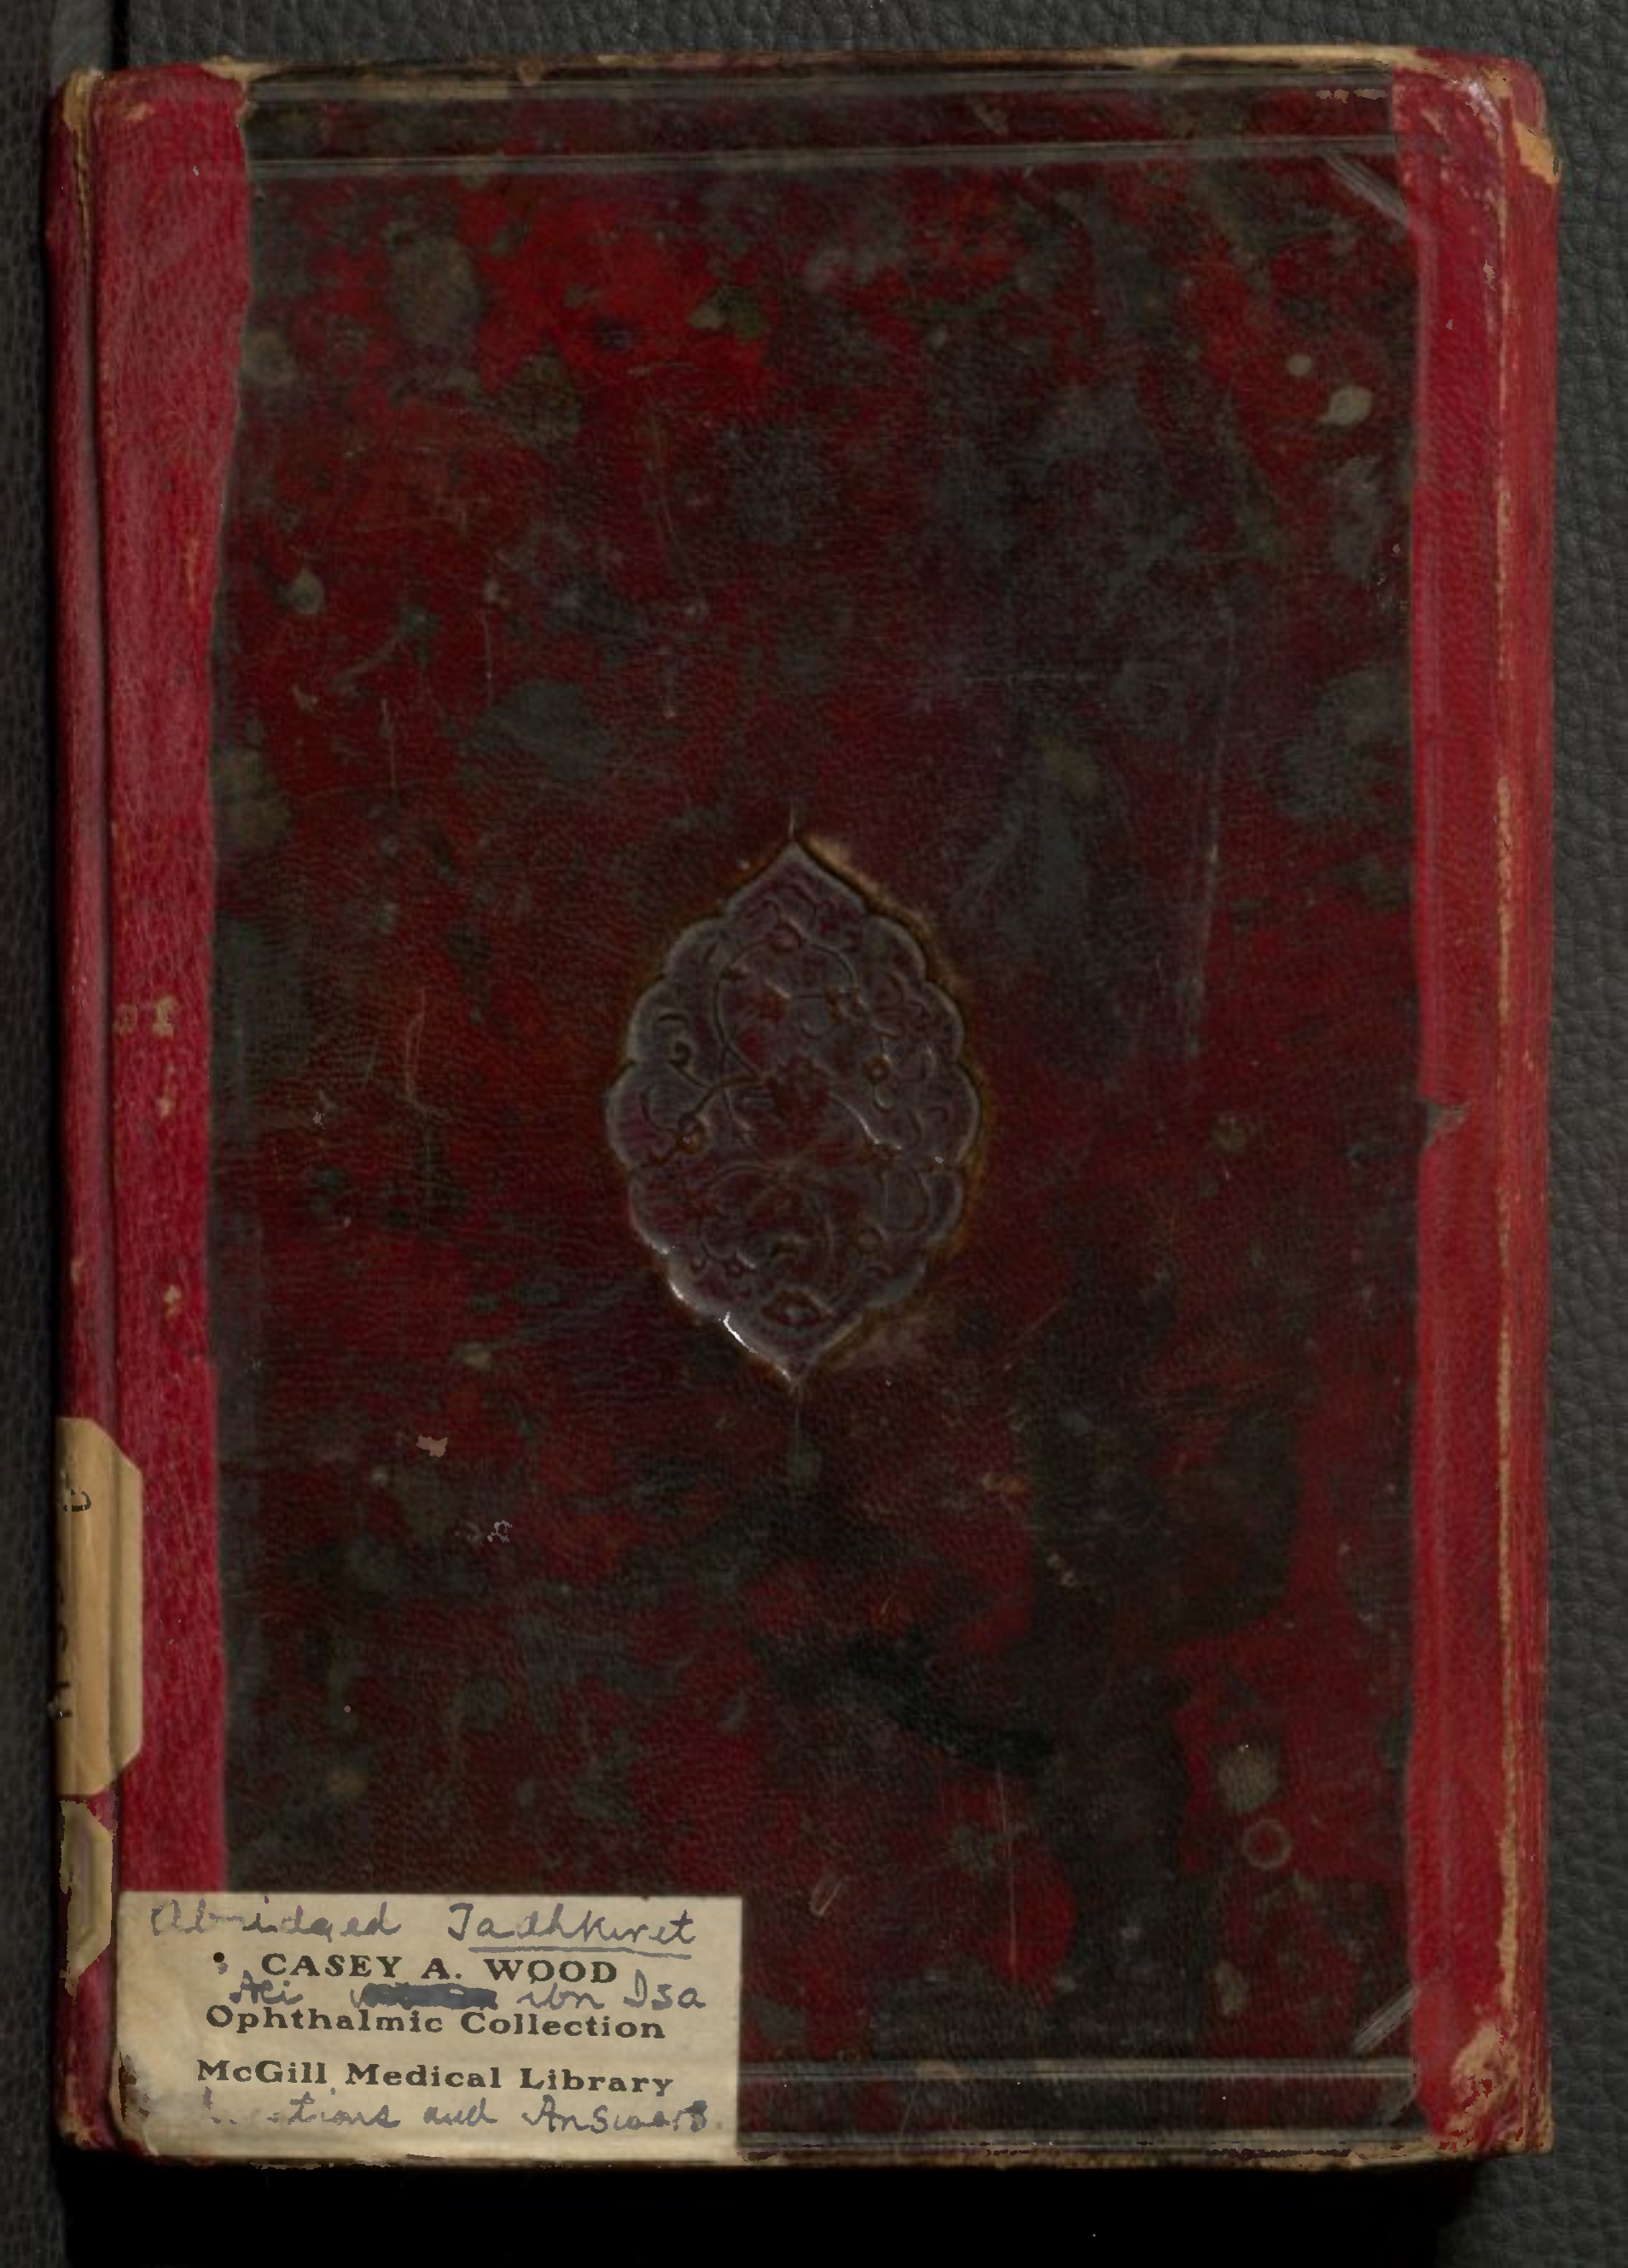 Abridged Tadhkiret
CASEY A. WOOD
Ali ibn Isa
Ophthalmic Collection
McGill Medical Library
and Answers